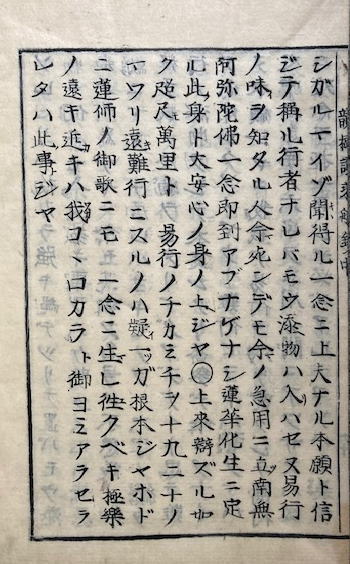 シガル一イゾ聞得ル一念ニ上夫ナル本願ト信
ジテ稱ル行者ナレバモウ添物ハ入ハセヌ易行
ノ味ヲ知タル人余宛ンデモ余ノ急用ニ立南無
阿弥陀佛一念即到アブナゲナシ蓮華化生ニ定
ル此身ト大安心ノ身ノ上ジヤ〇上來辯ズル如
ク咫尺萬里ト易行ノチカミチヲ十九二十ノ
一ワリ遠難行ニスルノハ疑一ツガ根本ジヤホド
ニ蓮師ノ御歌ニモ一念ニ生レ徃クベキ極樂
ノ遠キ近キハ我コヽロカラト御ヨミアラセラ
レタハ此事ジヤ